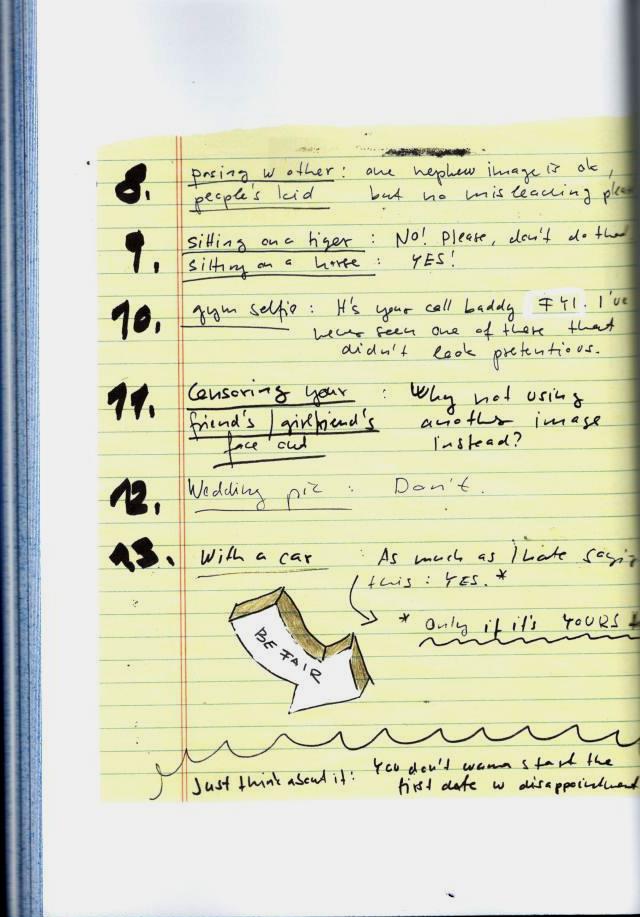 8. posing w other : one nephew image is ok,
people's kid but no misleading
9. sitting on a tiger : NO! Please, don't do
sitting on a horse : YES!
10. gym selfie : It's your call baddy FYI. I've
never seen one of these that
didn't look pretentious.
11. Censoring your : Why not using
friend's / girlfriend's another image
face out instead?
12. Wedding pic : Don't.
13. With a car : As much as I hate
this : YES. *
* Only if it's YOURS
BE FAIR
Just think about it: You don't wanna start the
first date w disappointment